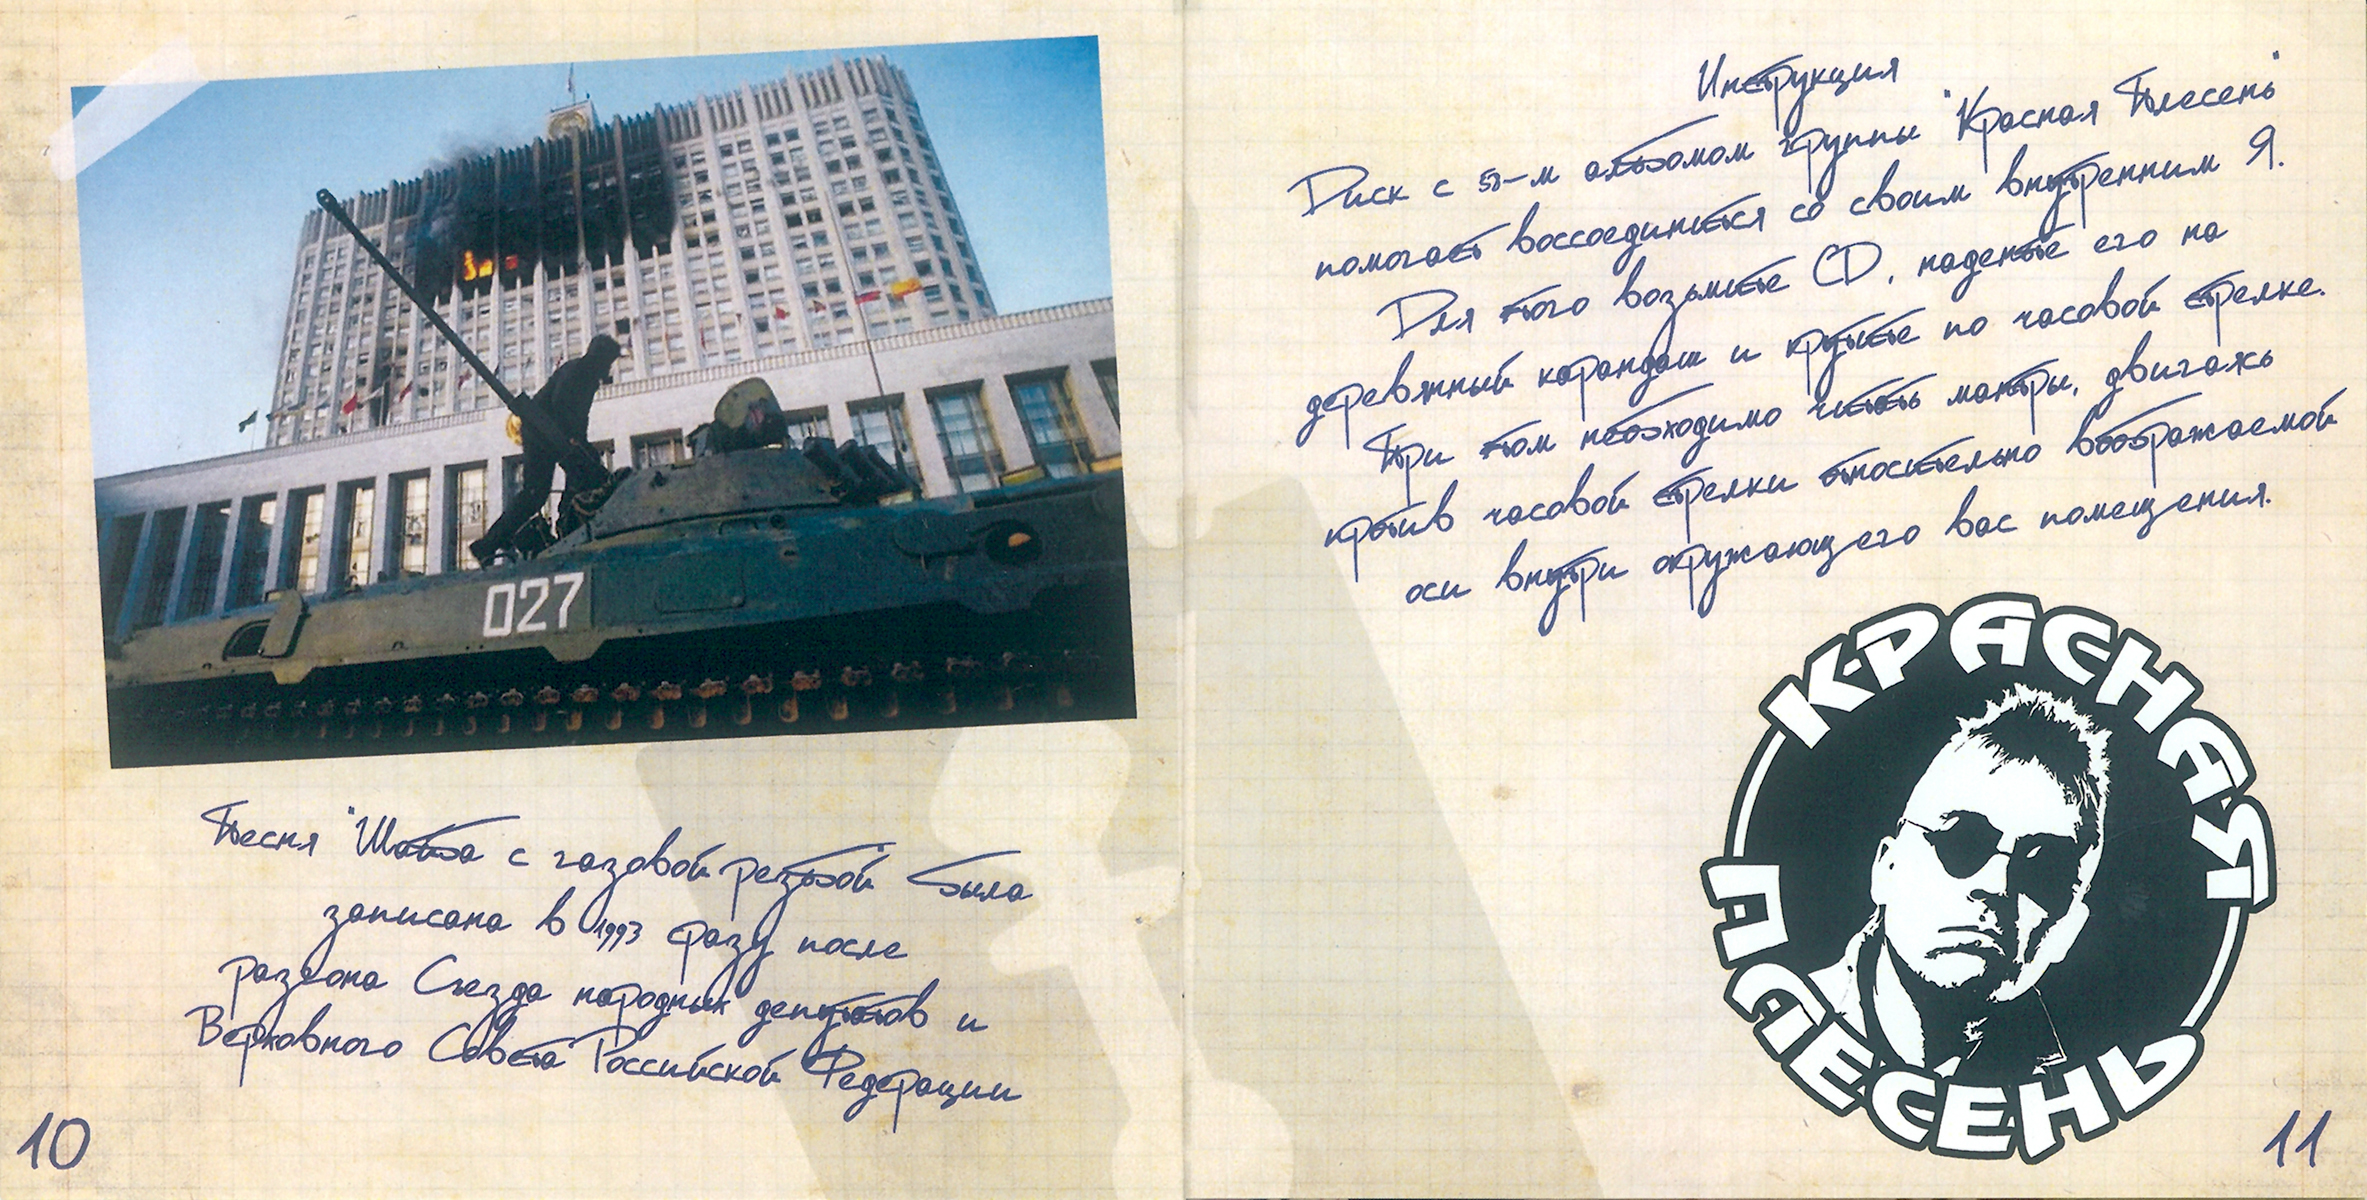 027
Песня "Шайба с газовой резьбой" была
записана в 1993 сразу после
разгона Съезда народных депутатов и
Верховного Совета Российской Федерации
10
Инструкция
Диск с 58-м альбомом группы "Красная Плесень"
помогает воссоединиться со своим внутренним Я.
Для этого возьмите CD, наденьте его на
деревянный карандаш и крутите по часовой стрелке.
При этом необходимо читать мантры, двигаясь
против часовой стрелки относительно воображаемой
оси внутри окружающего вас помещения.
КРАСНАЯ
ПЛЕСЕНЬ
11